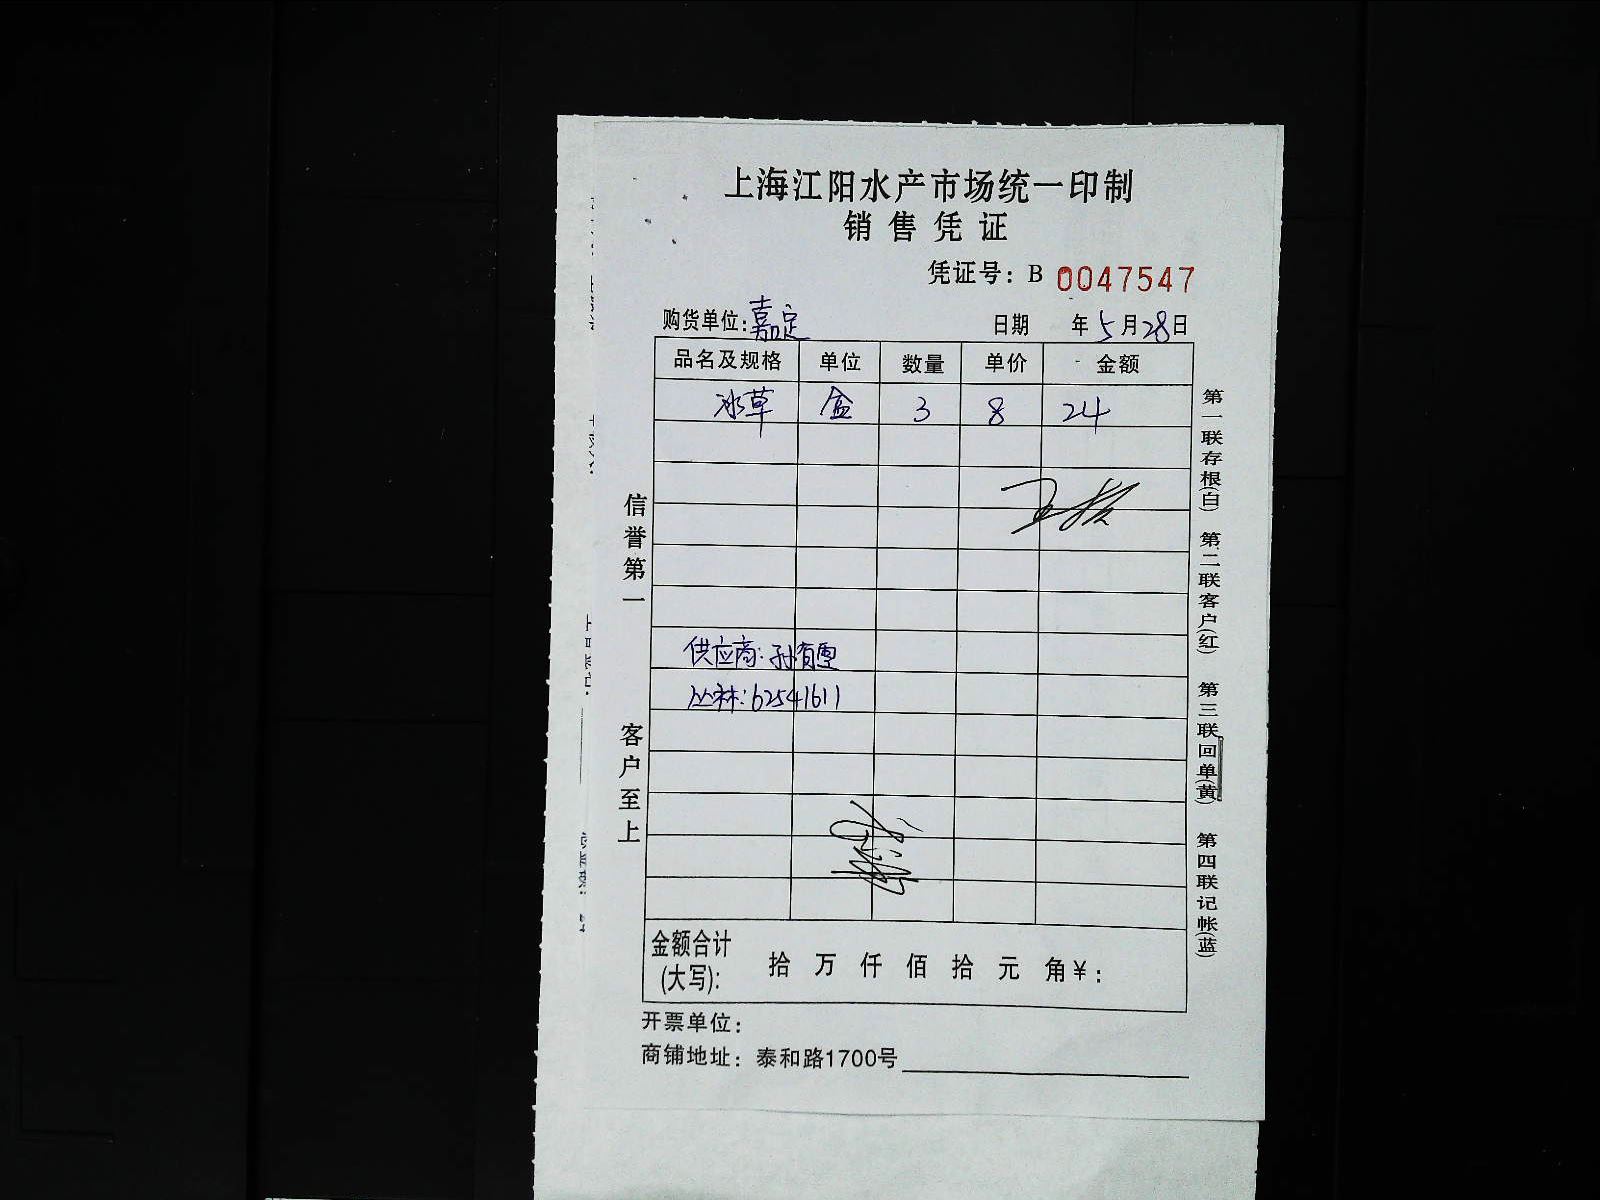 上海江阳水产市场统一印制
销售凭证
凭证号：B 0047547
购货单位：嘉定 日期 年5月28日
品名及规格 单位 数量 单价 金额
冰草 盒 3 8 24
供应商：孙有
丛林：62541611
金额合计(大写)： 拾 万 仟 佰 拾 元 角 ¥：
开票单位：
商铺地址：泰和路1700号
信誉第一 客户至上
第一联存根(白) 第二联客户(红) 第三联回单(黄) 第四联记帐(蓝)